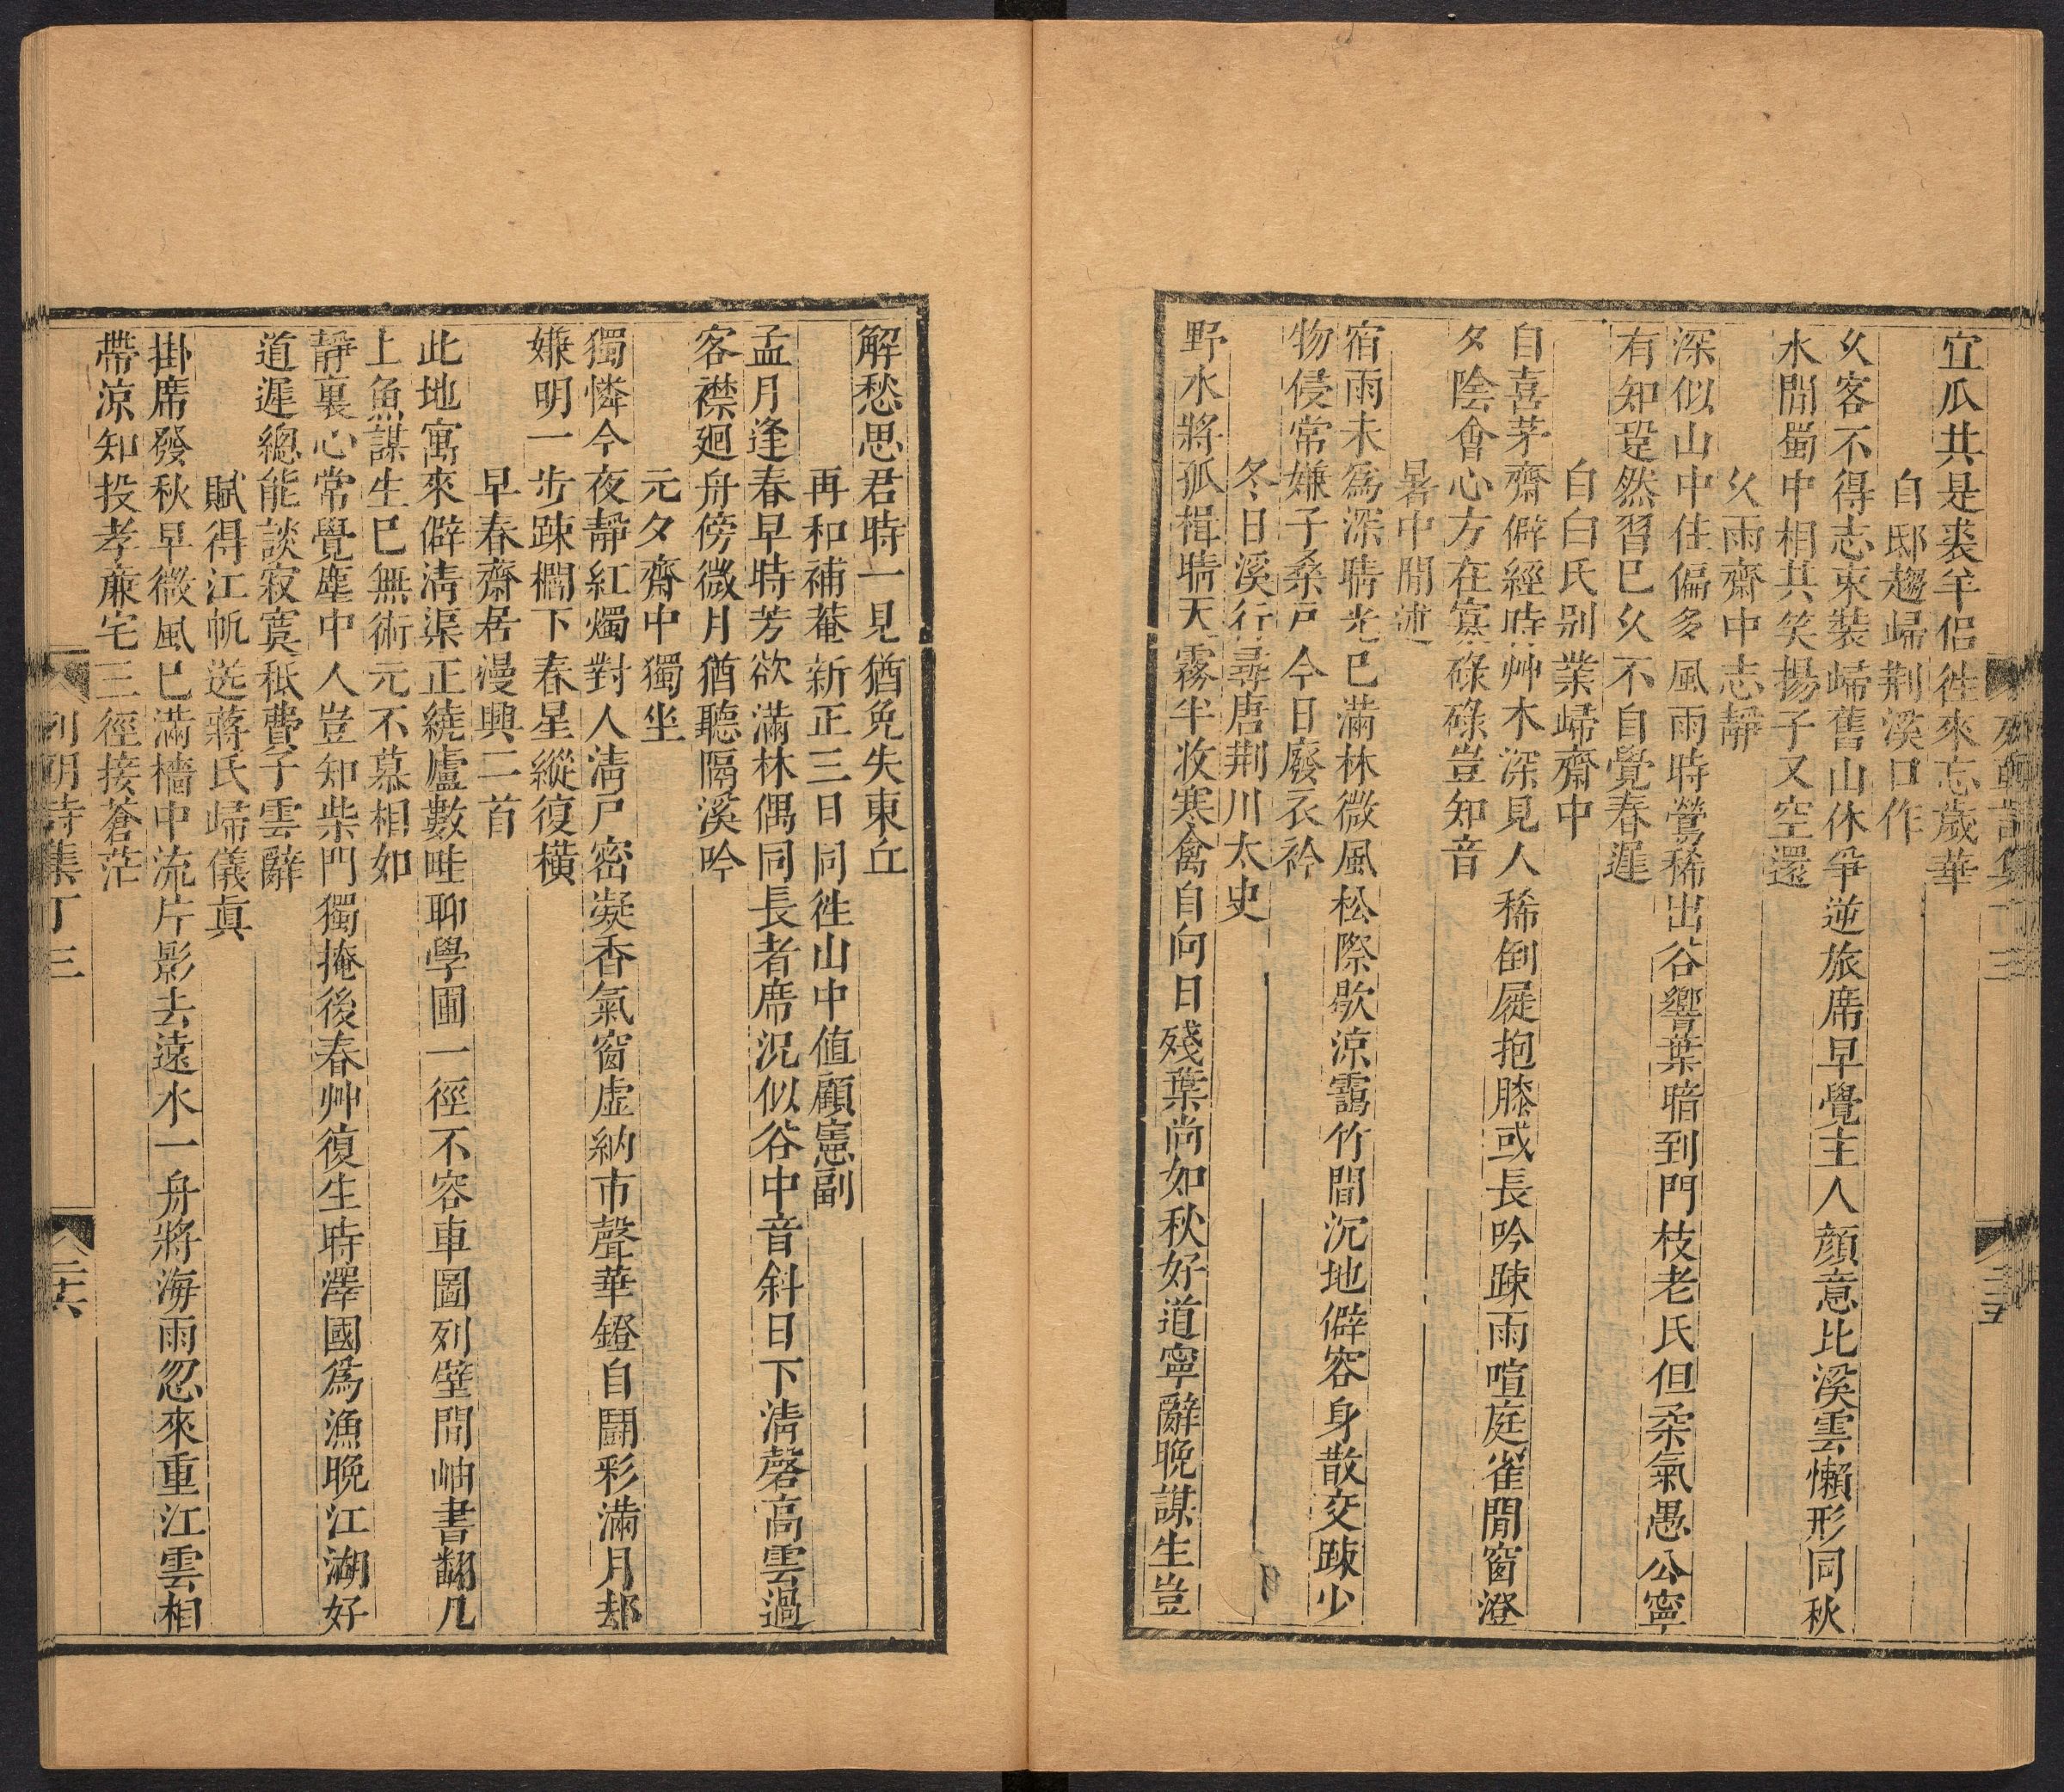 宜瓜共是裘羊侶徃來忘歲華
自邸趨歸荆溪口作
久客不得志束裝歸舊山休爭逆旅席早覺主人顔意比溪雲懶形同秋
水閒蜀中相共笑揚子又空還
久雨齋中志靜
深似山中住偏多風雨時鶯稀出谷響葉暗到門枝老氏但柔氣愚公寧
有知跫然習巳久不自覺春遲
自白氏别業歸齋中
自喜茅齋僻經時艸木深見人稀倒屣抱膝或長吟踈雨喧庭雀閒窗澄
夕陰會心方在寡碌碌豈知音
暑中閒述
宿雨未爲深晴光巳滿林微風松際歇涼靄竹間沉地僻容身散交踈少
物侵常嫌子桑戸今日廢衣衿
冬日溪行尋唐荆川太史
野水將孤楫晴天霧半收寒禽自向日殘葉尚如秋好道寧辭晚謀生豈
解愁思君時一見猶免失東丘
再和補菴新正三日同徃山中值顧憲副
孟月逢春早時芳欲滿林偶同長者席況似谷中音斜日下清磬高雲過
客襟廻舟傍微月猶聽隔溪吟
元夕齋中獨坐
獨憐今夜靜紅燭對人清戸密凝香氣窗虛納市聲華鐙自鬪彩滿月却
嫌明一步踈櫩下春星縱復橫
早春齋居漫興二首
此地寓來僻清渠正繞廬數畦聊學圃一徑不容車圖列壁間岫書翻几
上魚謀生巳無術元不慕相如
靜裏心常覺塵中人豈知柴門獨掩後春艸復生時澤國爲漁晚江湖好
道遲總能談寂寞秪費子雲辭
賦得江帆送蔣氏歸儀眞
掛席發秋早微風巳滿檣中流片影去遠水一舟將海雨忽來重江雲相
帶涼知投孝亷宅三徑接蒼茫
列朝詩集丁三
二六